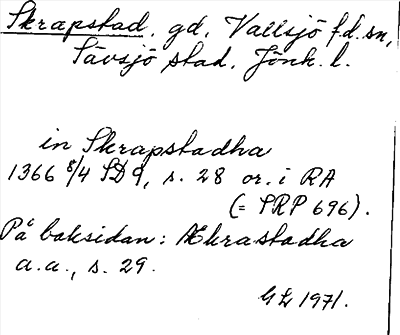 Skrapstad, gd, Vallsjö f.d. sn,
Sävsjö stad, Jönk. l.
in Skrapstadha
1366 8/4 SD 9, s. 28 or. i RA
(= SRP 696).
På baksidan:Ækrastadha
a.a., s. 29.
GL 1971.